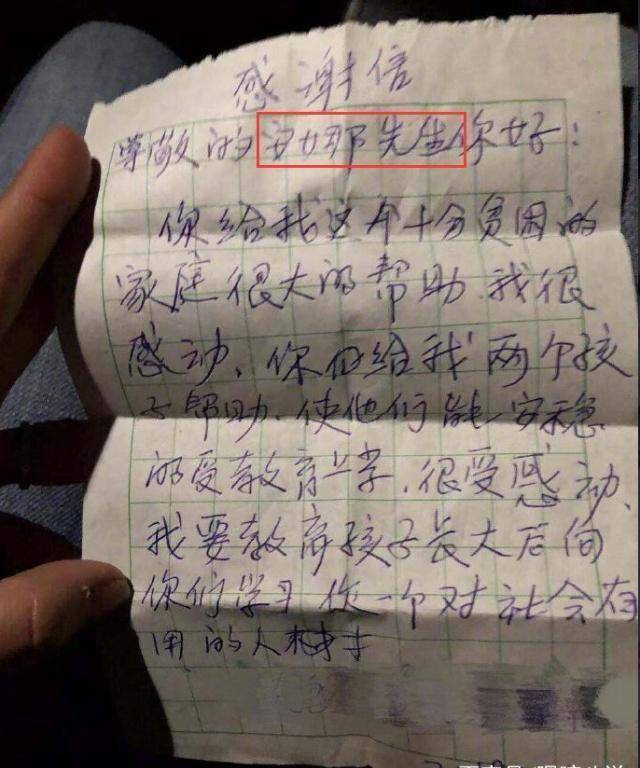 感谢信
尊敬的安娜先生你好：
你给我这个十分贫困的
家庭很大的帮助.我很
感动、你们给我两个孩
子帮助.使他们能安稳
的受教育上学.很受感动.
我要教育孩子长大后向
你们学习做一个对社会有
用的人材